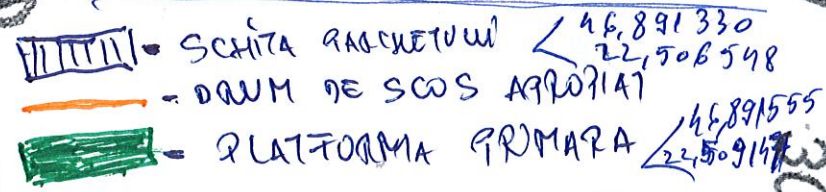 - SCHIȚA PARCHETULUI < 46,891330
22,506548
- DRUM DE SCOS APROPIAT
- PLATFORMA PRIMARA < 46,891555
22,50914